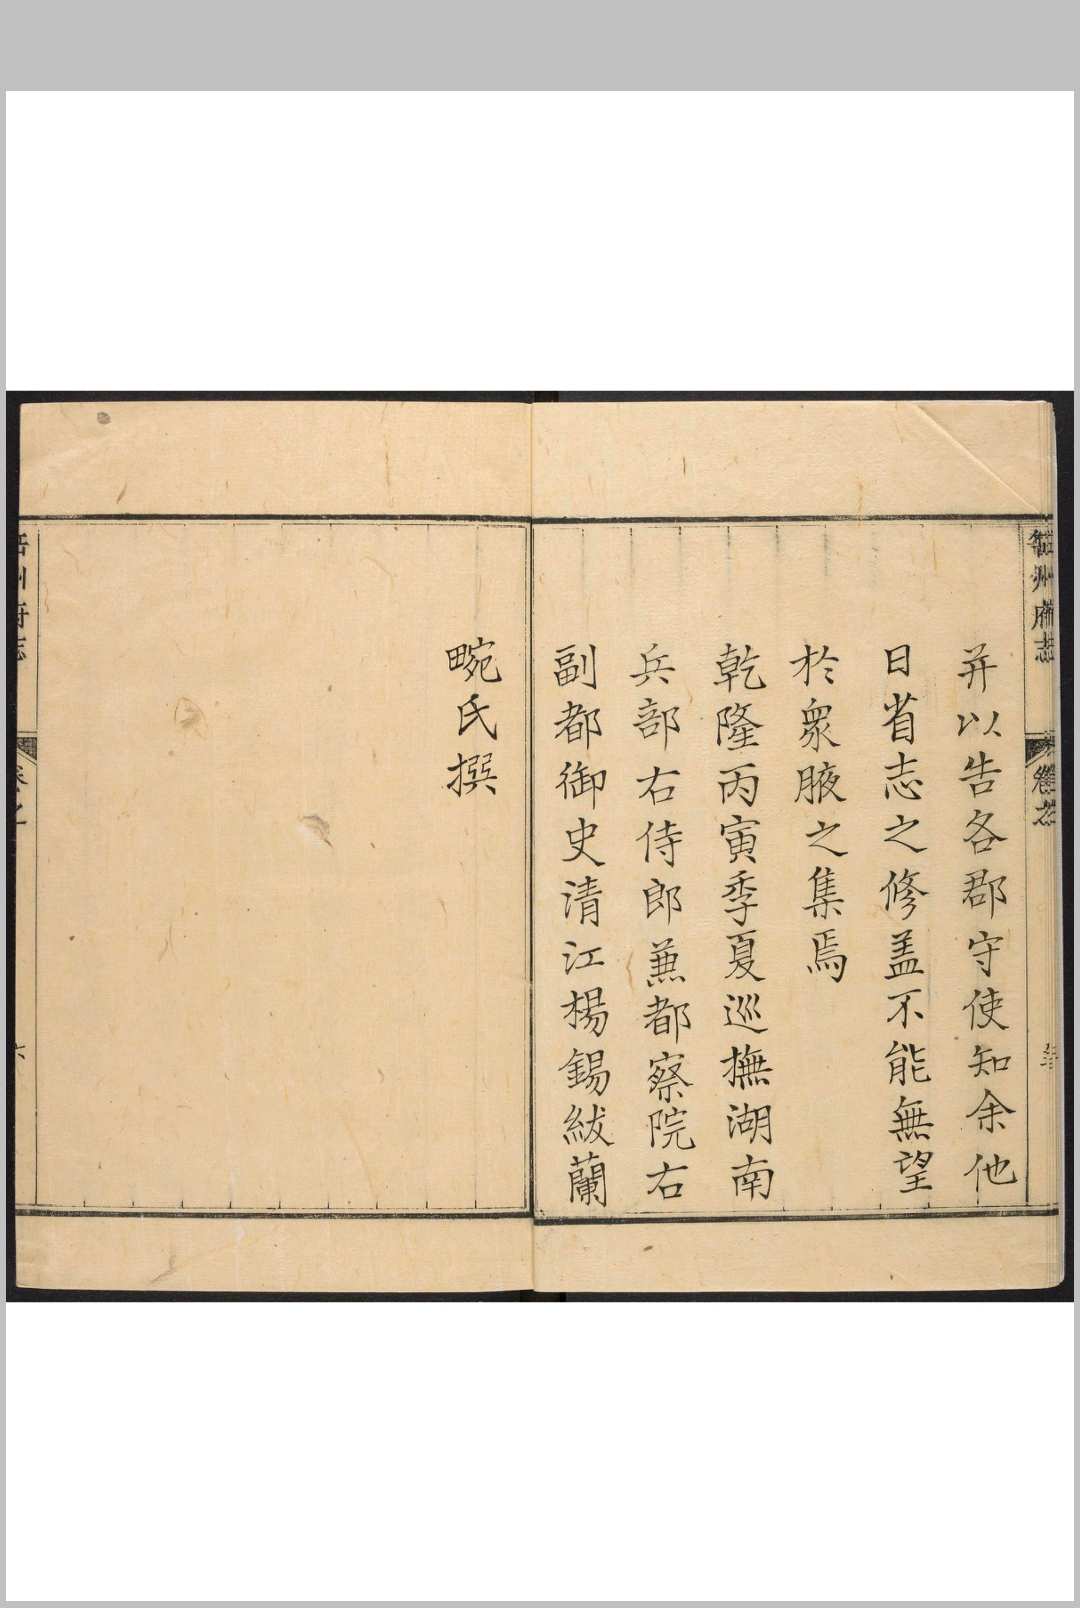 并以告各郡守使知余他
日省志之修盖不能無望
於衆腋之集焉
乾隆丙寅季夏巡撫湖南
兵部右侍郎兼都察院右
副都御史清江楊錫紱蘭
畹氏撰
岳州府志